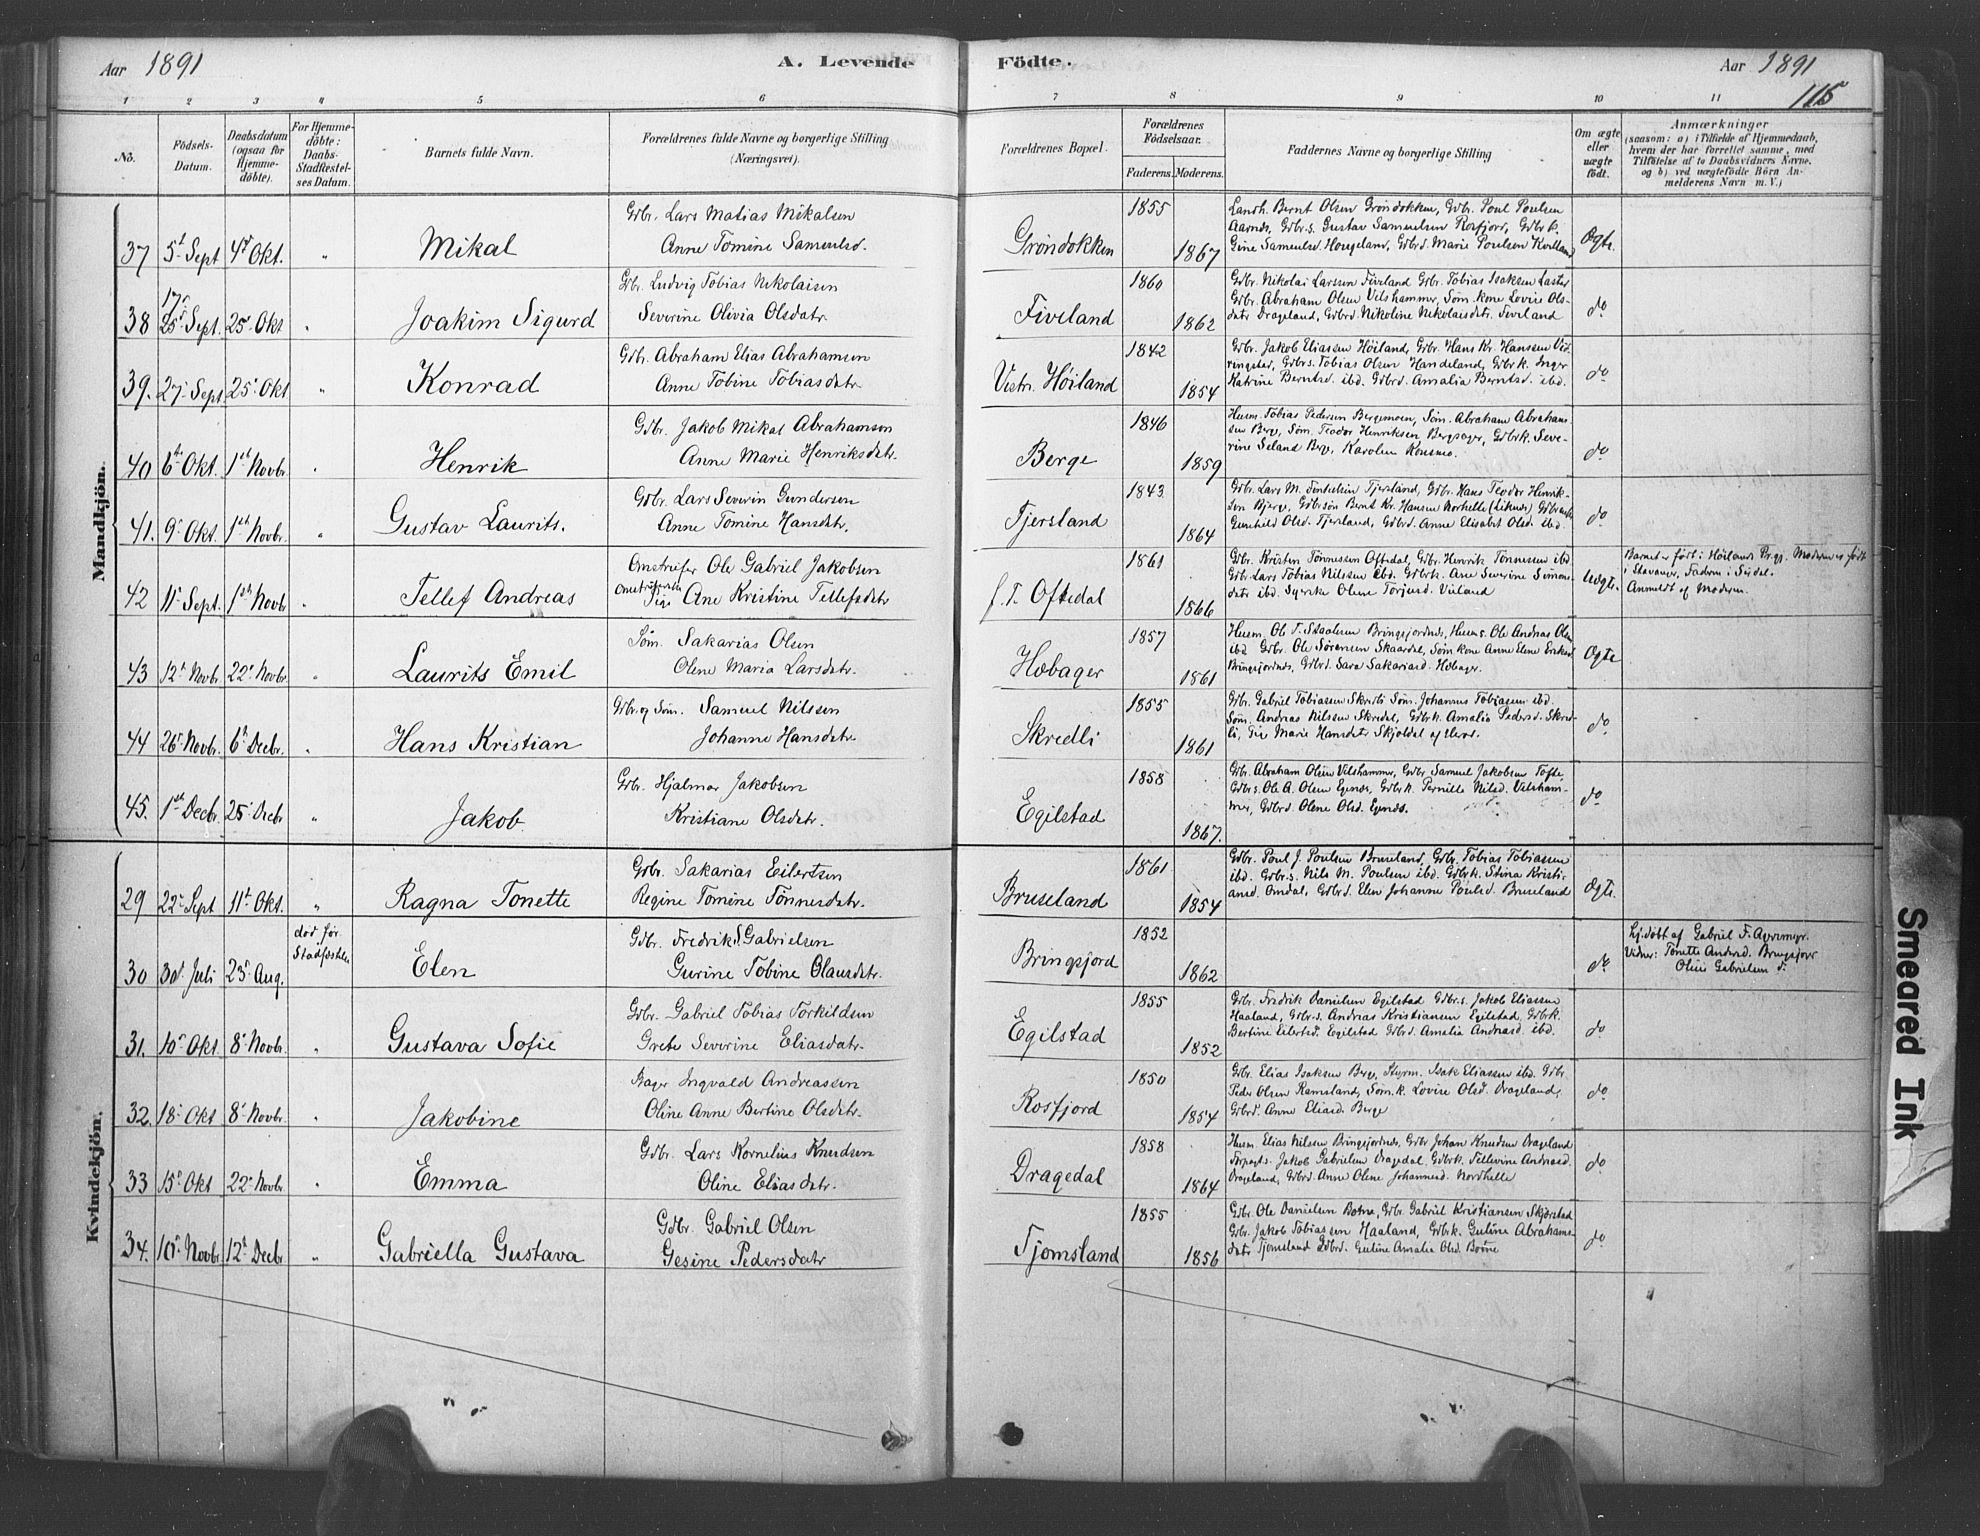 Aar 1891
A. Levende
Födte.
Aar 1891
115
1 2 3 4 5 6 7 8 9 10 11
No.
Födsels-
Datum.
Daabsdatum
(ogsaa for
Hjemme-
döbte).
For Hjemme-
döbte:
Daabs-
Stadfæstel-
ses Datum.
Barnets fulde Navn.
Forældrenes fulde Navne og borgerlige Stilling
(Næringsvei).
Forældrenes Bopæl.
Forældrenes
Födselsaar.
Faderens. Moderens.
Faddernes Navne og borgerlige Stilling
Om ægte
eller
uægte
födt.
Anmærkninger
(saasom: a) i Tilfælde af Hjemmedaab,
hvem der har forrettet samme, med
Tilföielse af to Daabsvidners Navne.
og b) ved uægtefödte Börn An-
melderens Navn m. V.)
Mandkjön.
37 5t Sept 4d Okt. " Mikal
Gdbr. Lars Matias Mikalsen
Anne Tomine Samuelsd.
Gröndokken 1855 1867
Landh. Bernt Olsen Gröndokken, Gdbr. Poul Poulsen
Aarnes, Gdbr.s. Gustav Samuelsen Rosfjord, Gdbr.k.
Gine Samuelsd. Hougeland, Gdbrd. Marie Poulsen
Ægte.
38 17 25 Sept. 25 Okt " Joakim Sigurd
Gdbr. Ludvig Tobias Nikolaisen
Severine Olivia Olsdatr.
Fiveland 1860 1862
Gdbr. Nikolai Larssen Fiveland Gdbr. Tobias Isaksen
Gdbr. Abraham Olsen Vilshammer, Söm. kone Lovise Ols-
datr Drageland, Gdbrd. Nikoline Nikolaisdatr. Fiveland
do
39. 27 Sept 25 Okt " Konrad
Gdbr. Abraham Elias Abrahamsen
Anne Tobine Tobiasdatr.
Vestr. Höiland 1842 1854
Gdbr. Jakob Eliassen Höiland, Gdbr. Hans Kr. Hanssen Ved-
ringstad, Gdbr.s. Tobias Olsen Handeland, Gdbr.k. Inger
Katrine Berntsd. ibd. Gdbrd. Amalia Berntsd. ibd.
do
40 6te Okt. 1st Novbr. " Henrik
Gdbr. Jakob Mikal Abrahamson
Anne Marie Henriksdatr.
Berge 1846 1859
Husm. Tobias Pedersen Bergemoen, Söm. Abraham Abraham-
sen Berge, Söm. Teodor Henriksen Bergsager, Gdbrk. Seve-
rine Seland Berge, Karoline Konsmo.
do
41. 9 Okt. 1st Novbr. " Gustav Laurits.
Gdbr. Lars Severin Gundersen
Anne Tomine Hansdatr.
Tjersland 1843 1864
Gdbr. Lars M. Tjersland, Gdbr. Hans Teodor Henrik-
sen Bjerge, Gdbrsön Bernt Kr. Hansen
Gunhild Olsd. Tjersland, Gdbrd. Anne Elisabet Olsd. ibd.
do
42 11 Sept. 1ste Novbr " Tellef Andreas
Omstreifer Ole Gabriel Jakobsen
Omstreifende
Pige Ane Kristine Tellefsdatr
f. T. Oftedal 1861 1866
Gdbr. Kristen Tönnessen Oftedal, Gdbr. Henrik Tönnessen ibd.
Gdbr. Lars Tobias Nilssen ibd. Gdbrk. Ane Severine Simons-
datr ibd. Olene Torjusd. Veiland
Uægte.
Barnet er född i Höilands Prgj. Moderen er född
i Stavanger, Faderen i Sirdal.
Anmeldt af Moderen.
43 12t Novbr. 22 Novbr. " Laurits Emil
Söm. Sakarias Olsen
Olene Maria Larsdatr.
Höbager 1857 1861
Husm. Ole T. Staalesen Bringsjordnes, Husm.s. Ole Andreas Olsen
ibd Gdbr. Ole Sörensen Skaardal, Söm. kone Anne Elene
Bringsjordnes, Gdbrd. Sara Sakariasd. Höbager.
Ægte
44 26 Novbr. 6t Decbr. " Hans Kristian
Gdbr. og Söm. Samuel Nilssen
Johanne Hansdatr.
Skredli 1855 1861
Gdbr. Gabriel Tobiassen Skredli Söm. Johannes Tobiassen ibd.
Söm. Andreas Nilssen Skredal, Gdbrk. Amalia Pedersd. Skred-
li, Pige Marie Hansdatr Skjoldal af
do
45. 1st Decbr. 25 Decbr " Jakob
Gdbr. Hjalmar Jakobsen
Kristiane Olsdatr.
Egilstad 1858 1867.
Gdbr. Abraham Olsen Vilshammer, Gdbr Samuel Jakobsen Tofte,
Gdbr.s. Ole A. Olsen Egenes, Gdbr.k. Pernille Nilsd. Vilsham-
mer, Gdbrd. Olene Olsd. Egenes.
do
Kvindekjön.
29 22 Sept 11t Okt. " Ragna Tonette
Gdbr. Sakarias Eilertsen
Regine Tomine Tönnesdatr.
Bruseland 1861 1854
Gdbr. Poul J. Poulsen Bruseland, Gdbr. Tobias Tobiassen
ibd. Gdbr.s. Nils M. Poulsen ibd. Gdbrk. Stina Kristi-
ansd. Omdal, Gdbrd. Elen Johanne Poulsd. Bruseland
Ægte.
30 30 Juli 23 Aug. död för
Stadfæstelse
Elen
Gdbr. Fredrik S. Gabrielsen
Gurine Tobine Olausdatr.
Bringsjord 1852 1862
do
hj. döbt af Gabriel F.
Vidner: Tonette Andersd. Bringsjord
Oline Gabrielsen
31. 10 Okt 8 Novbr. " Gustava Sofie
Gdbr. Gabriel Tobias Torkildsen
Grete Severine Eliasdatr.
Egilstad 1855 1852
Gdbr. Fredrik Danielsen Egilstad Gdbr.s. Jakob Eliassen
Haaland, Gdbr.s. Andreas Kristiansen Egilstad, Gdbrk.
Bertine Eilertsd. Egilstad Gdbrd. Amalia Andreasd. ibd.
do
32. 18 Okt 8 Novbr. " Jakobine
Bager Ingvald Andreassen
Oline Anne Bertine Olsdatr.
Rosfjord 1850 1854
Gdbr. Elias Isaksen Berge, Styrm. Isak Eliassen ibd. Gdbr.
Peder Olsen Ramsland, Söm.k. Lovise Olsd. Drageland,
Gdbrd. Anne Eliasd. Berge
do
33 15 Okt 22 Novbr. " Emma
Gdbr. Lars Kornelius Knudsen
Oline Eliasdatr.
Dragedal 1858 1864
Husm. Elias Nilssen Bringsjordnes, Gdbr Johan Knudsen Drageland
Forpagts. Jakob Gabrielsen Dragedal, Gdbrk. Tellevine Andreasd.
Drageland, Gdbrd. Anne Oline Johannesd. Nordhelle
do
34. 10 Novbr. 12t Decbr " Gabriella Gustava
Gdbr. Gabriel Olsen
Gesine Pedersdatr
Tjomsland 1855 1856
Gdbr. Ole Danielsen Botne, Gdbr. Gabriel Kristiansen Skjerstad
Gdbr. Jakob Tobiassen Haaland, Gdbr.k. Guline Abrahams-
datr Tjomsland Gdbrd. Guline Amalia Olsd. Botne
do
Smeared Ink